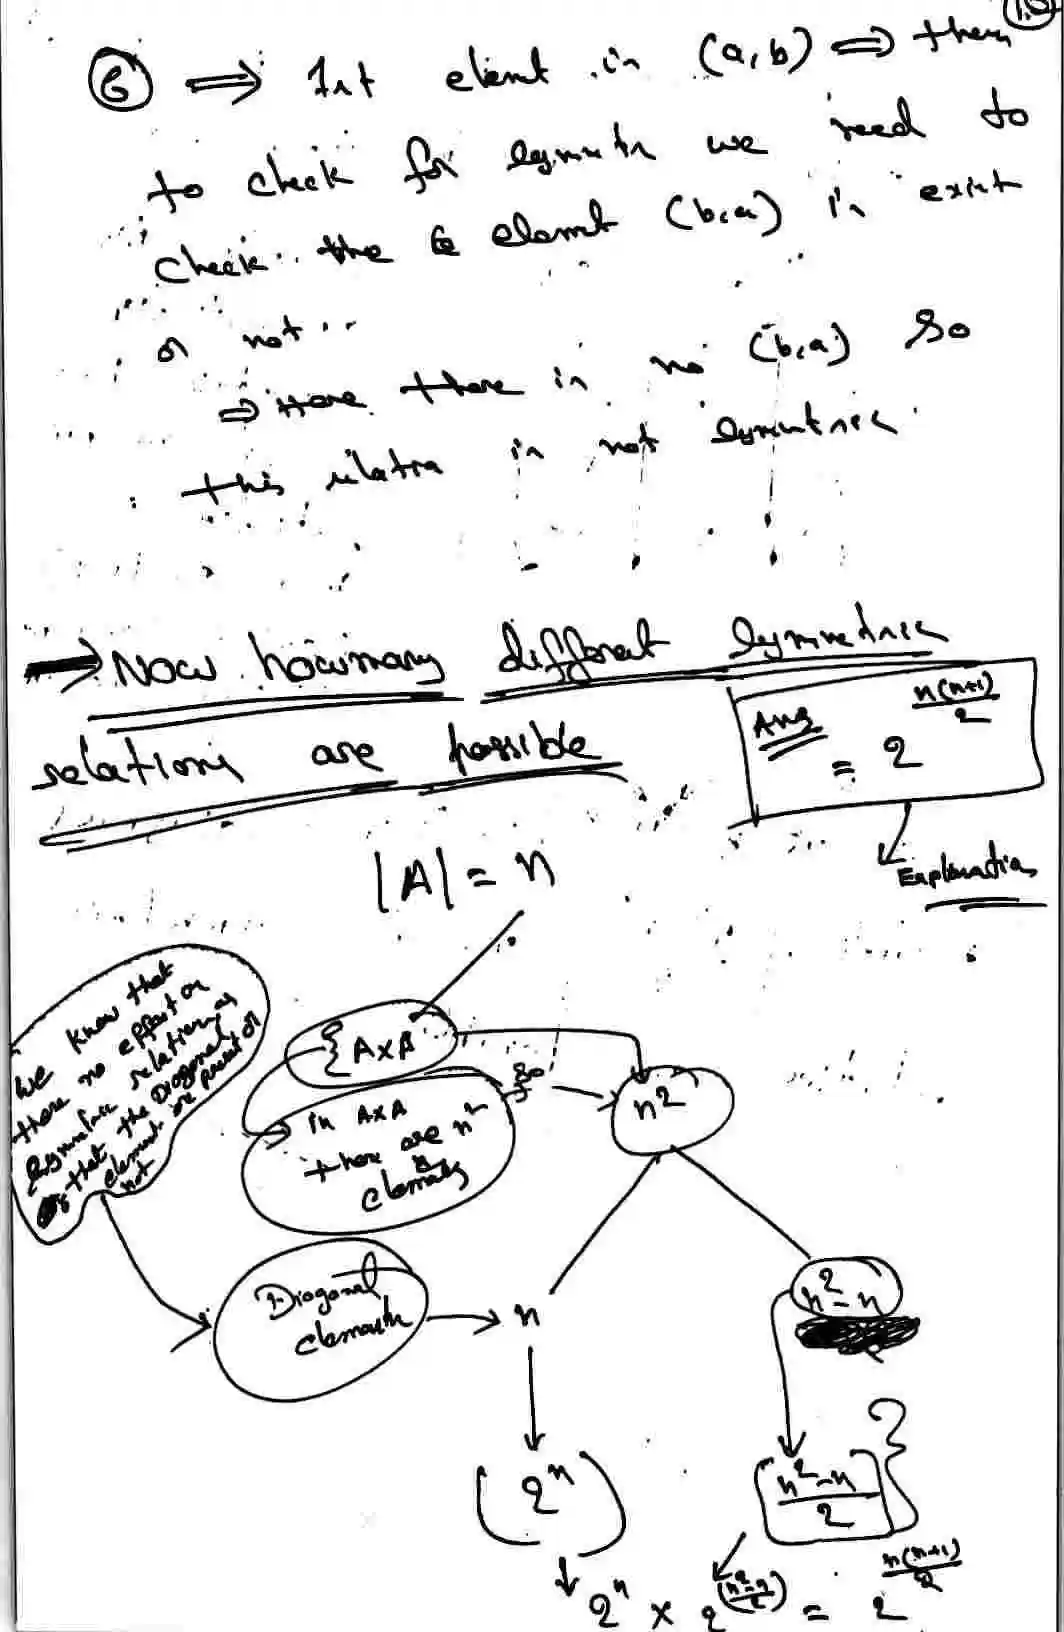 ⑥ ⟹ 1st elemt in (a,b) ⟹ then
to check for symmetr we need to
check the elemnt (b,a) is exist
or not
⇒ Here there is no (b,a) So
this relatio is not symmetric
→ Now howmany different symmetric
relations are possible
Ans = 2^(n(n+1)/2)
Explanation
|A| = n
we know that
there no effect on
symmetric relation as
that the Diagonal
element are present or
not
{A×A
in A×A
there are n²
elements
So
n²
Diagonal
elements
n
n² - n
(2^n)
[(n² - n)/2]}
2^n × 2^((n²-n)/2) = 2^(n(n+1)/2)